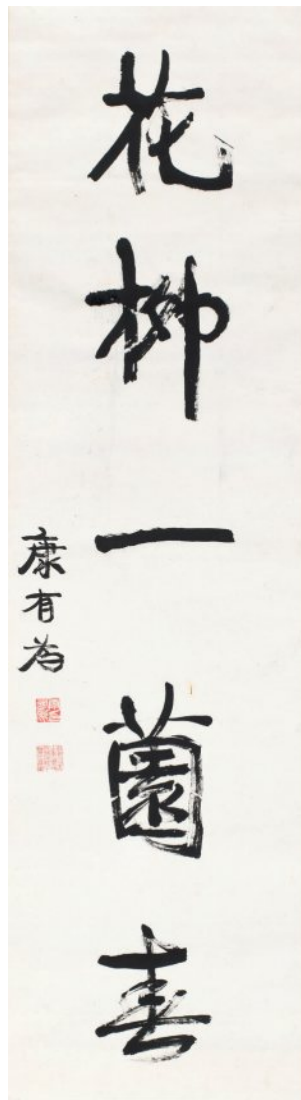 花柳一薗春
康有為